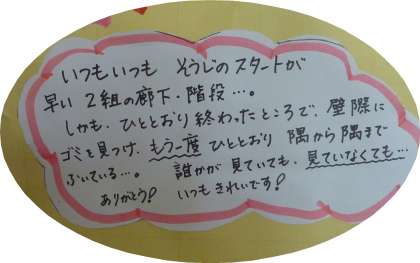 いつもいつも そうじのスタートが
早い 2組の廊下・階段…。
しかも、ひととおり終わったところで、壁際に
ゴミを見つけ、もう一度 ひととおり 隅から隅まで
ふいている…。 誰かが 見ていても、見ていなくても…
ありがとう! いつもきれいです!